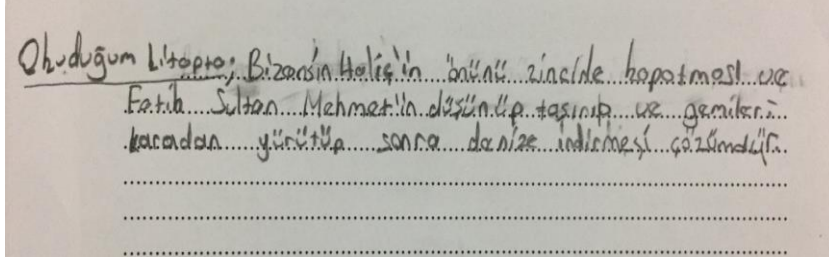 Okuduğum kitapta; Bizansın Haliç'in önünü zincirle kapatması ve
Fatih Sultan Mehmet'in düşünüp taşınıp ve gemileri
karadan yürütüp sonra denize indirmesi çözümdür.